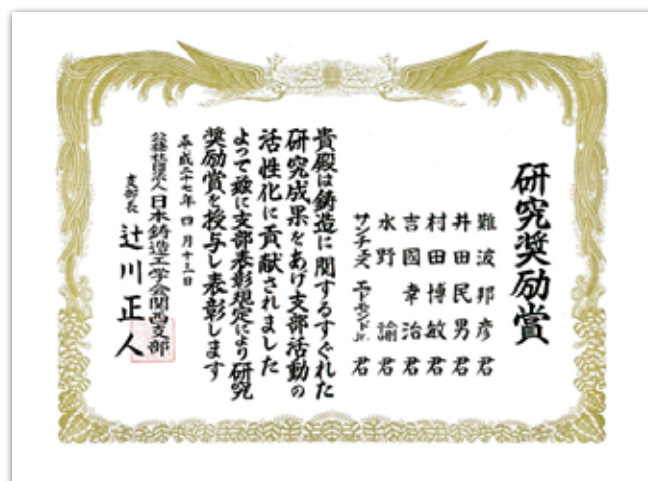 研究奨励賞
難波邦彦君
井田民男君
村田博敏君
吉國幸治君
水野諭君
サンチェス エドモンドJr.君
貴殿は鋳造に関するすぐれた
研究成果をあげ支部活動の
活性化に貢献されました
よって茲に支部表彰規定により研究
奨励賞を授与し表彰します
平成二十七年四月十三日
公益社団法人日本鋳造工学会関西支部
支部長 辻川正人